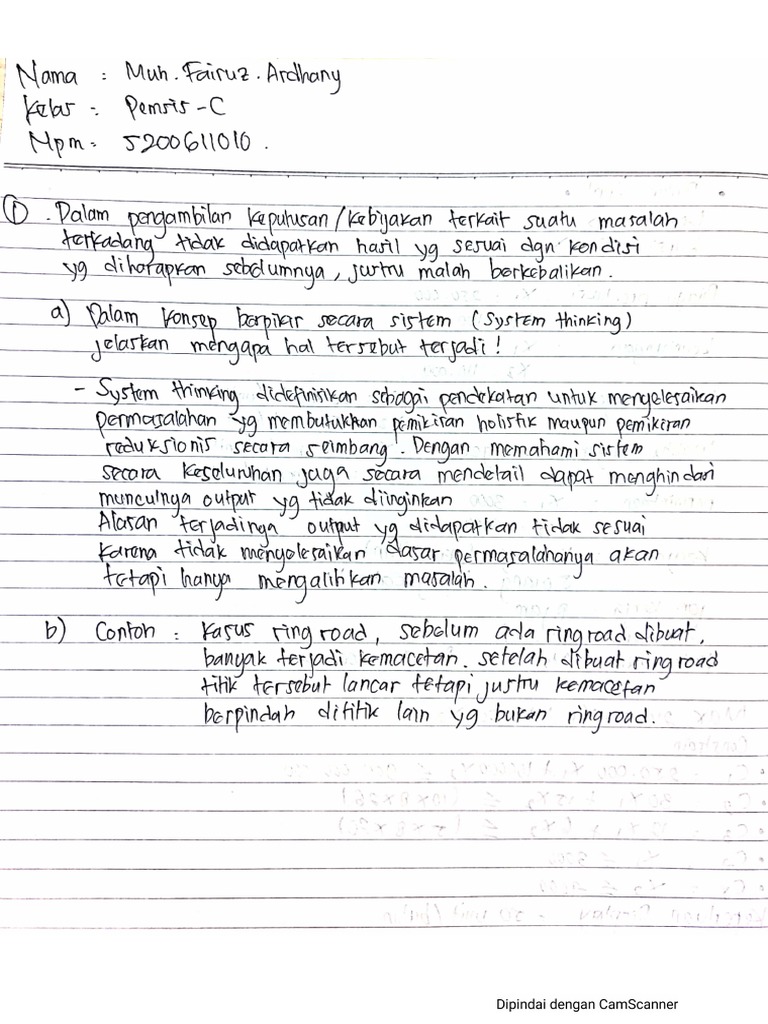 Nama : Muh. Fairuz. Ardhany
Kelas : Pemsis - C
Npm : 5200611010.
① . Dalam pengambilan keputusan / kebijakan terkait suatu masalah
terkadang tidak didapatkan hasil yg sesuai dgn kondisi
yg diharapkan sebelumnya, justru malah berkebalikan.
a) Dalam konsep berpikir secara sistem (System thinking)
jelaskan mengapa hal tersebut terjadi !
- System thinking didefinisikan sebagai pendekatan untuk menyelesaikan
permasalahan yg membutuhkan pemikiran holistik maupun pemikiran
reduksionis secara seimbang. Dengan memahami sistem
secara keseluruhan juga secara mendetail dapat menghindari
munculnya output yg tidak diinginkan
Alasan terjadinya output yg didapatkan tidak sesuai
karena tidak menyelesaikan dasar permasalahanya akan
tetapi hanya mengalihkan masalah.
b) Contoh : Kasus ring road, sebelum ada ringroad dibuat,
banyak terjadi kemacetan. setelah dibuat ringroad
titik tersebut lancar tetapi justru kemacetan
berpindah dititik lain yg bukan ringroad.
Dipindai dengan CamScanner